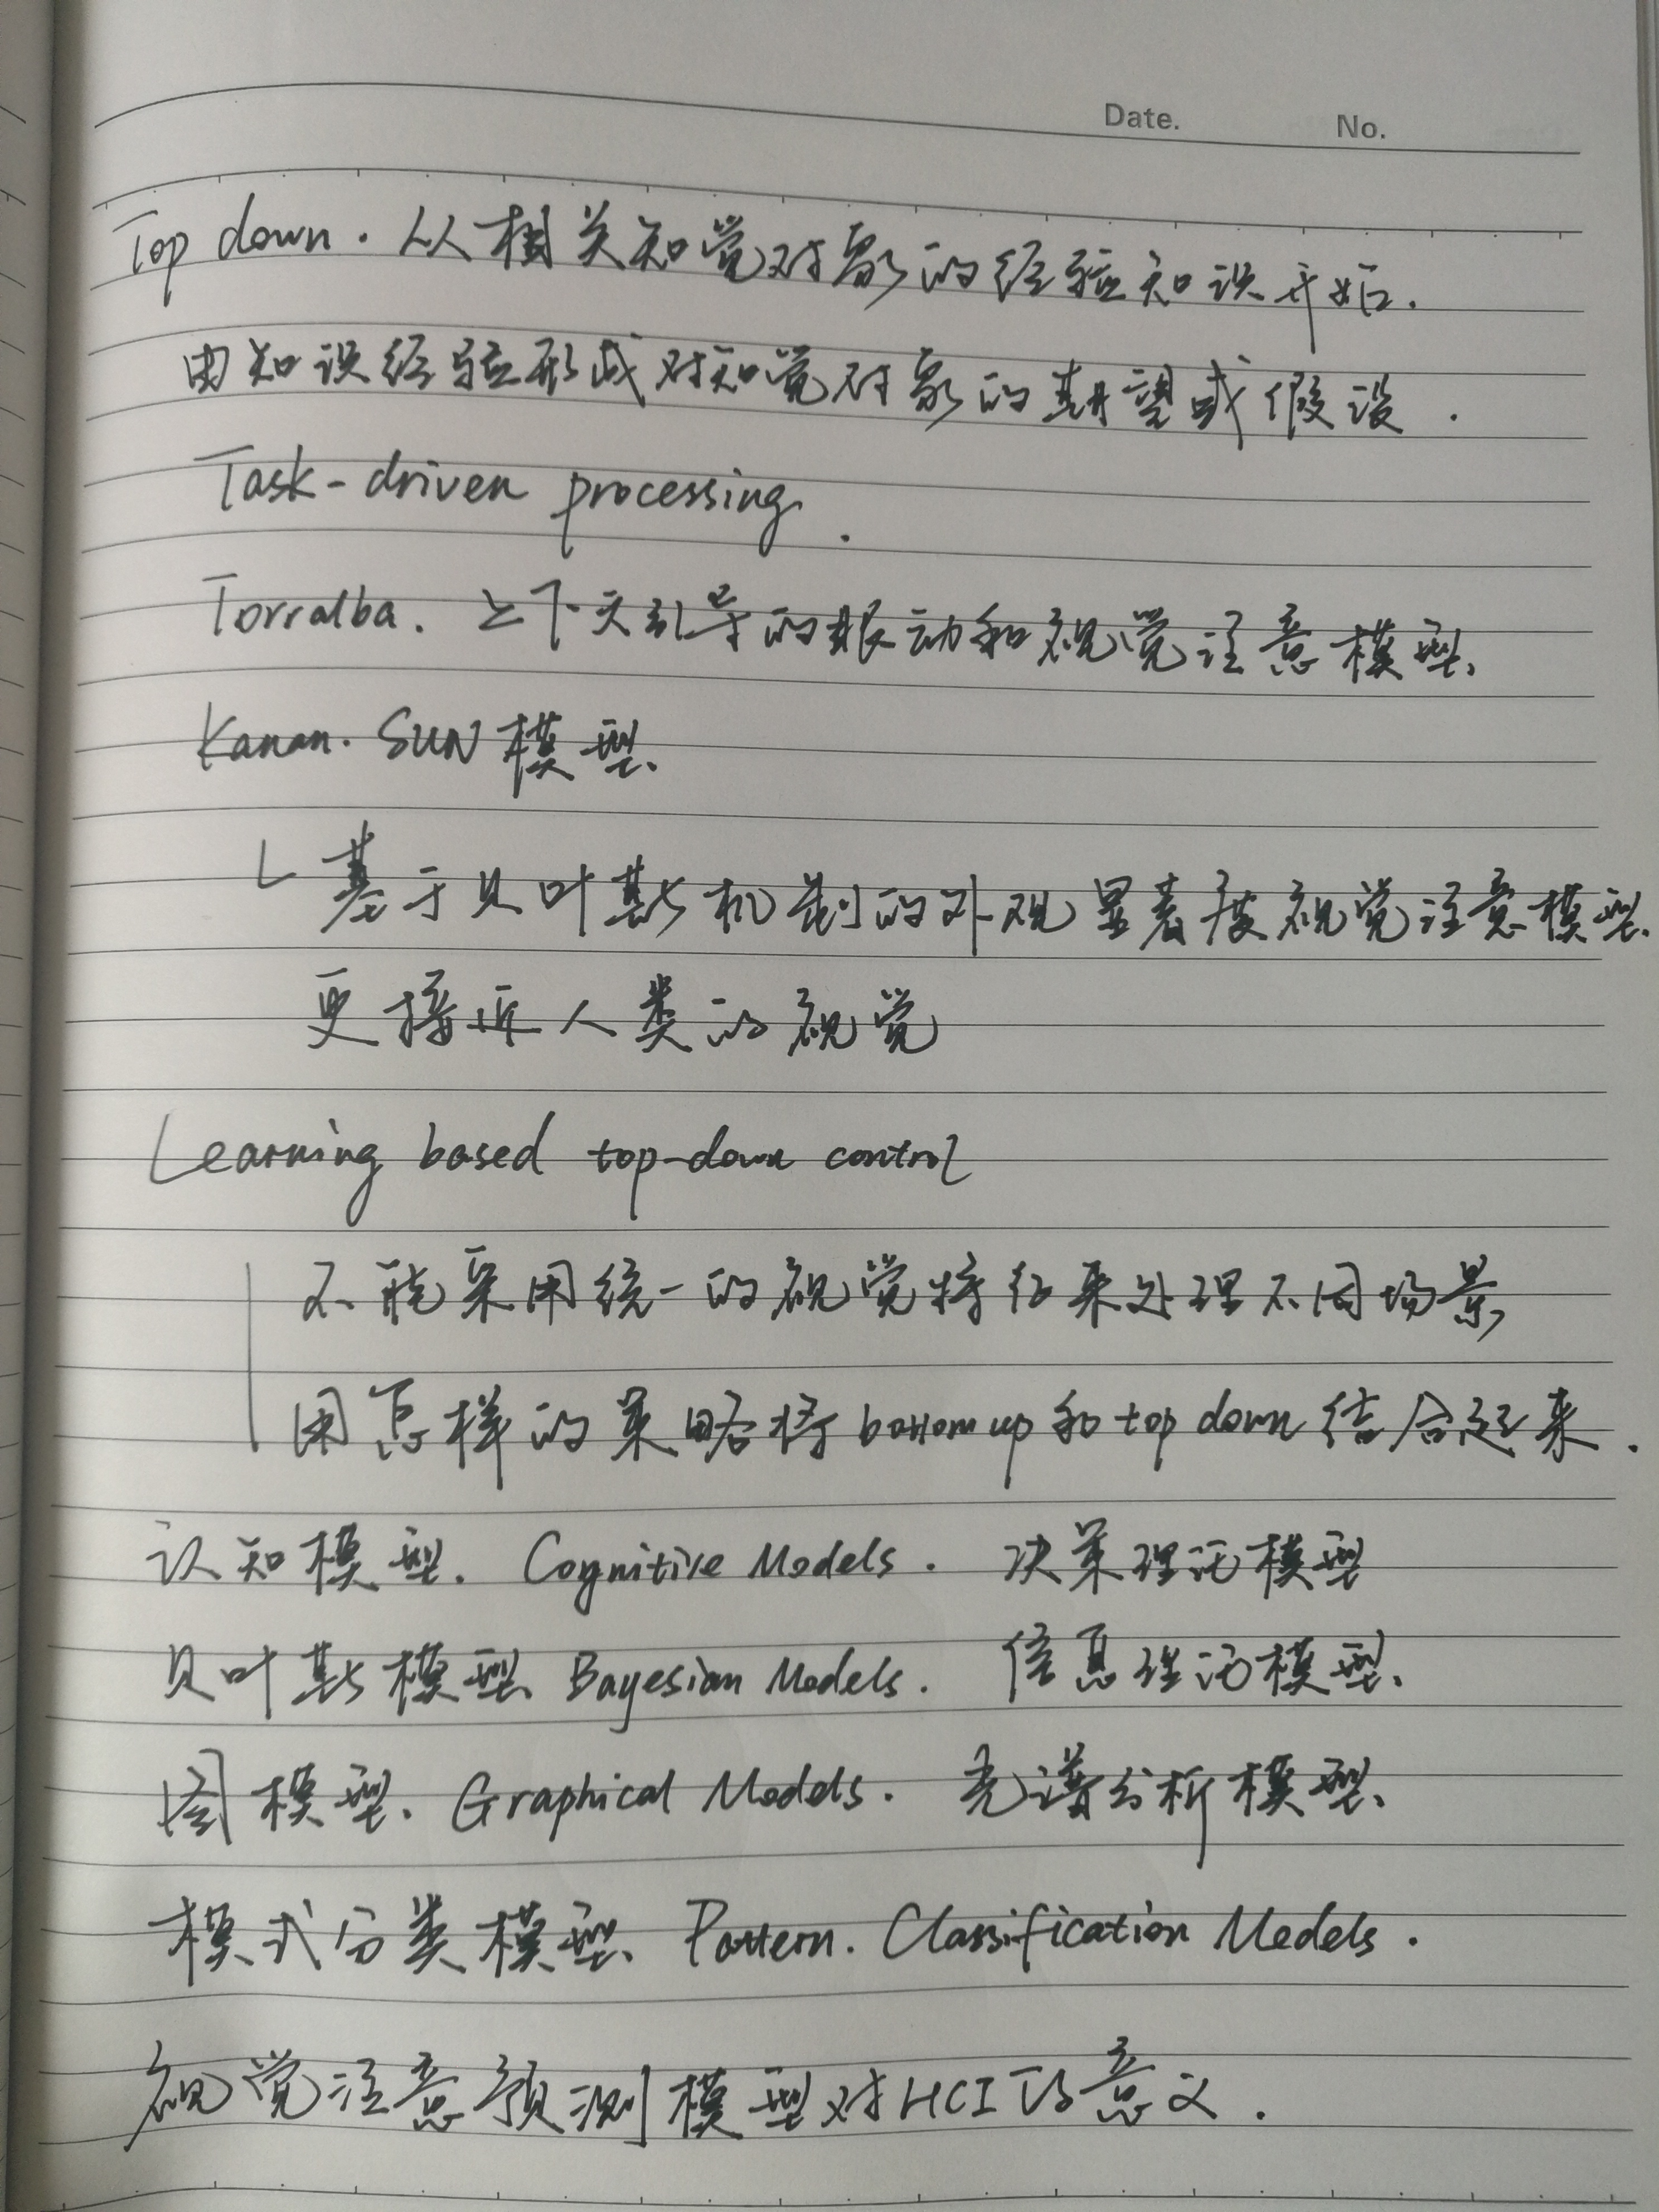 Date. No.
Top down. 从相关知觉对象的经验知识开始.
由知识经验形成对知觉对象的期望或假设.
Task-driven processing.
Torralba. 上下文引导的眼动和视觉注意模型.
Kanan. SUN模型.
基于贝叶斯机制的外观显著度视觉注意模型.
更接近人类的视觉
Learning based top-down control
不能采用统一的视觉特征来处理不同场景
用怎样的策略将bottom up和top down结合起来.
认知模型. Cognitive Models. 决策理论模型
贝叶斯模型. Bayesian Models. 信息理论模型.
图模型. Graphical Models. 光谱分析模型.
模式分类模型. Pattern. Classification Models.
视觉注意预测模型对HCI的意义.